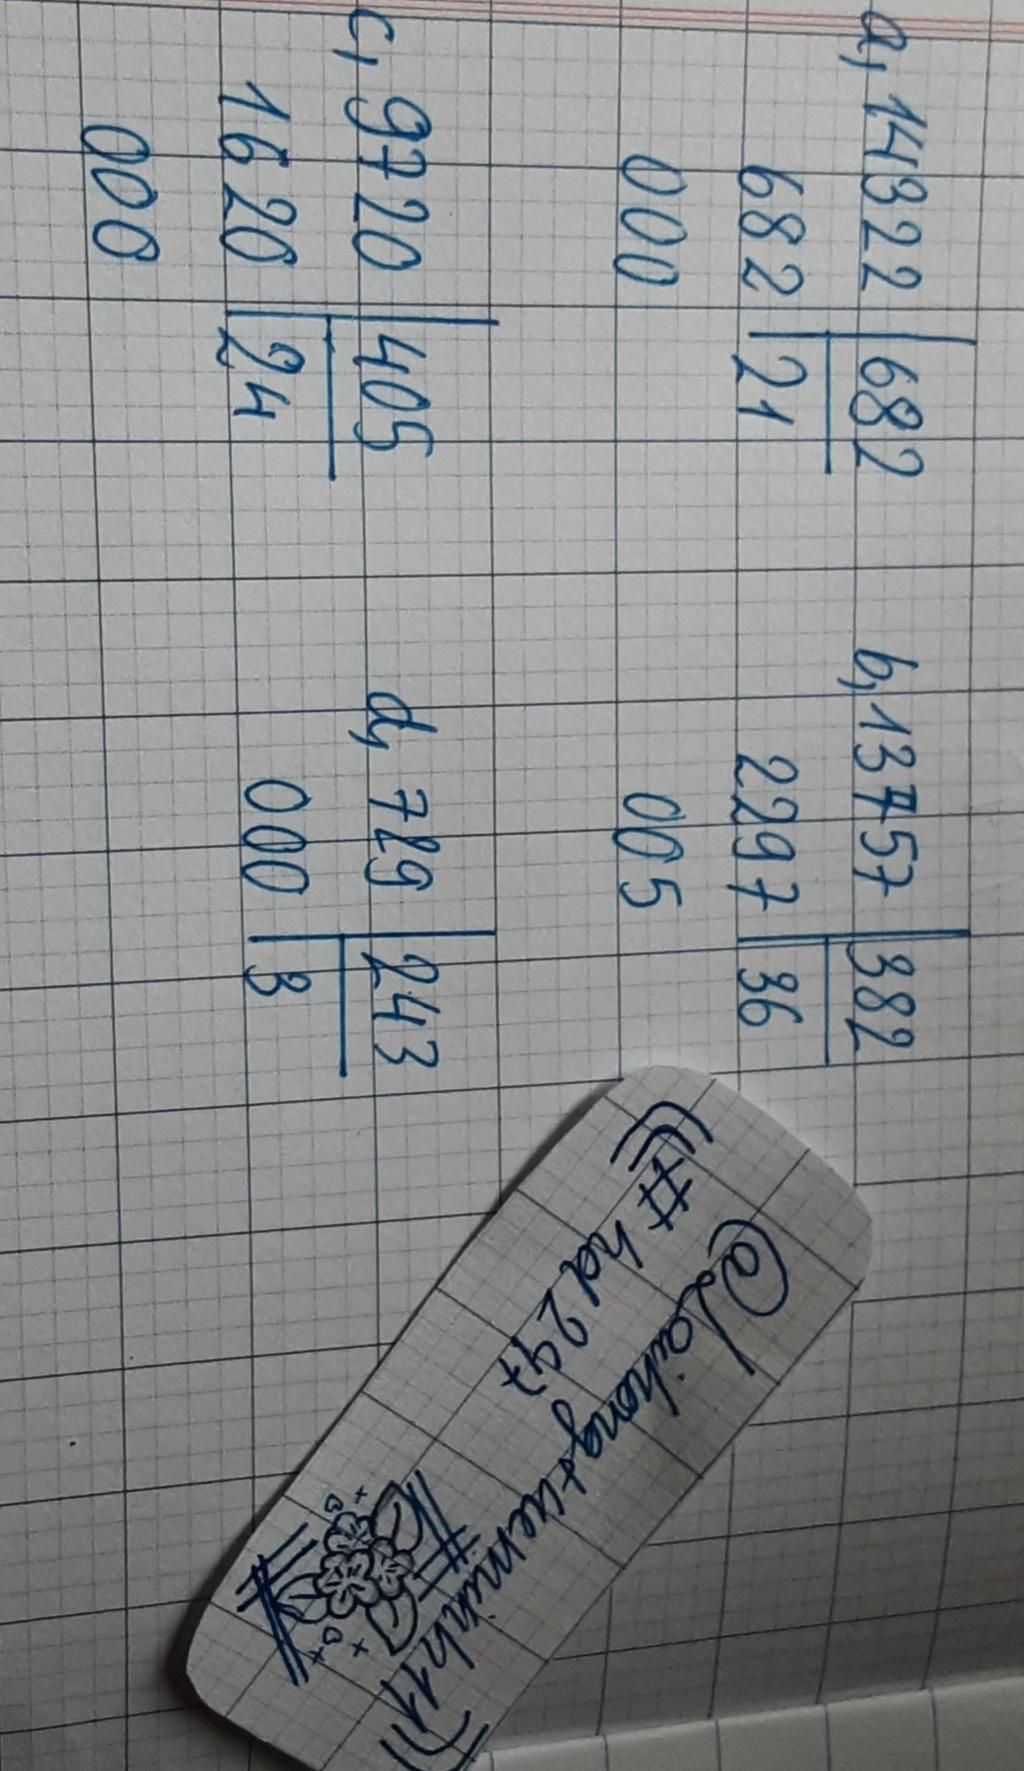 a, 14322 | 682
682 | 21
000
b, 13757 | 382
2297 | 36
005
c, 9720 | 405
1620 | 24
000
d, 729 | 243
000 | 3
(((# hd297